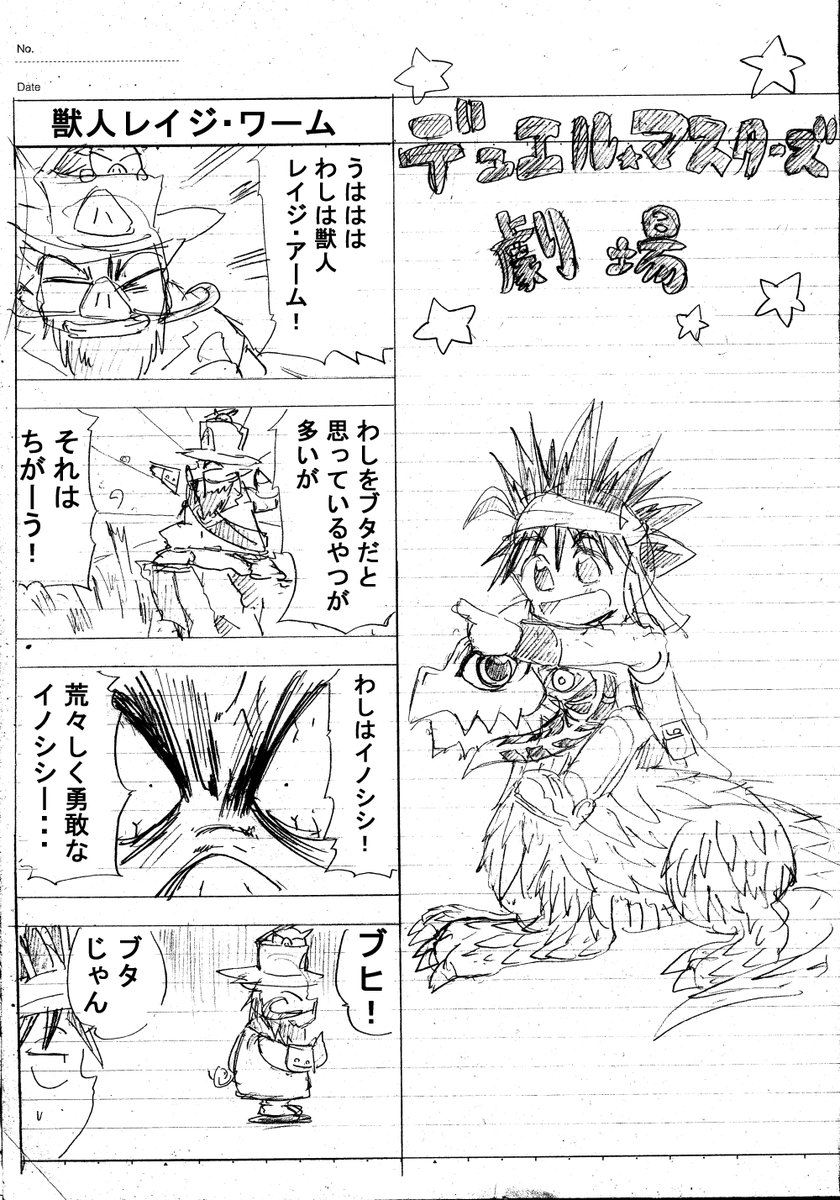 No.
Date
デュエル★マスターズ
劇場
獣人レイジ・ワーム
うははは
わしは獣人
レイジ・アーム！
わしをブタだと
思っているやつが
多いが
それは
ちがーう！
わしはイノシシ！
荒々しく勇敢な
イノシシー・・・
ブヒ！
ブタ
じゃん